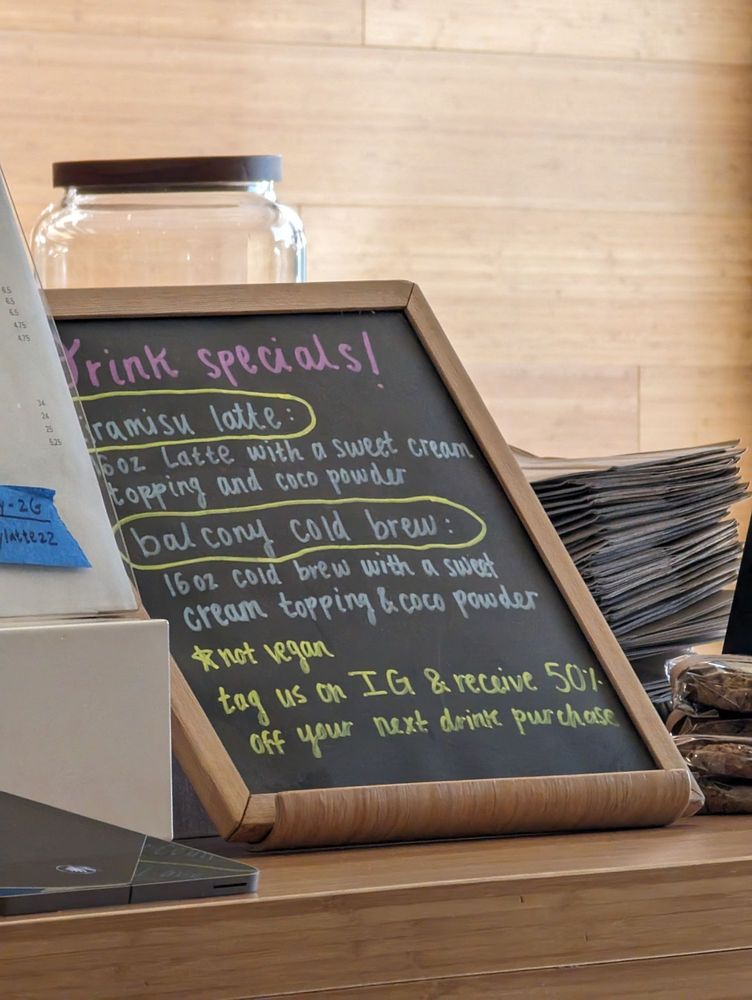 6.5
6.5
6.5
4.75
4.75
24
25
5.25
y-2G
latte22
Drink specials!
ramisu latte:
16oz Latte with a sweet cream
topping and coco powder
balcony cold brew:
16oz cold brew with a sweet
cream topping & coco powder
*not vegan
tag us on IG & receive 50%
off your next drink purchase